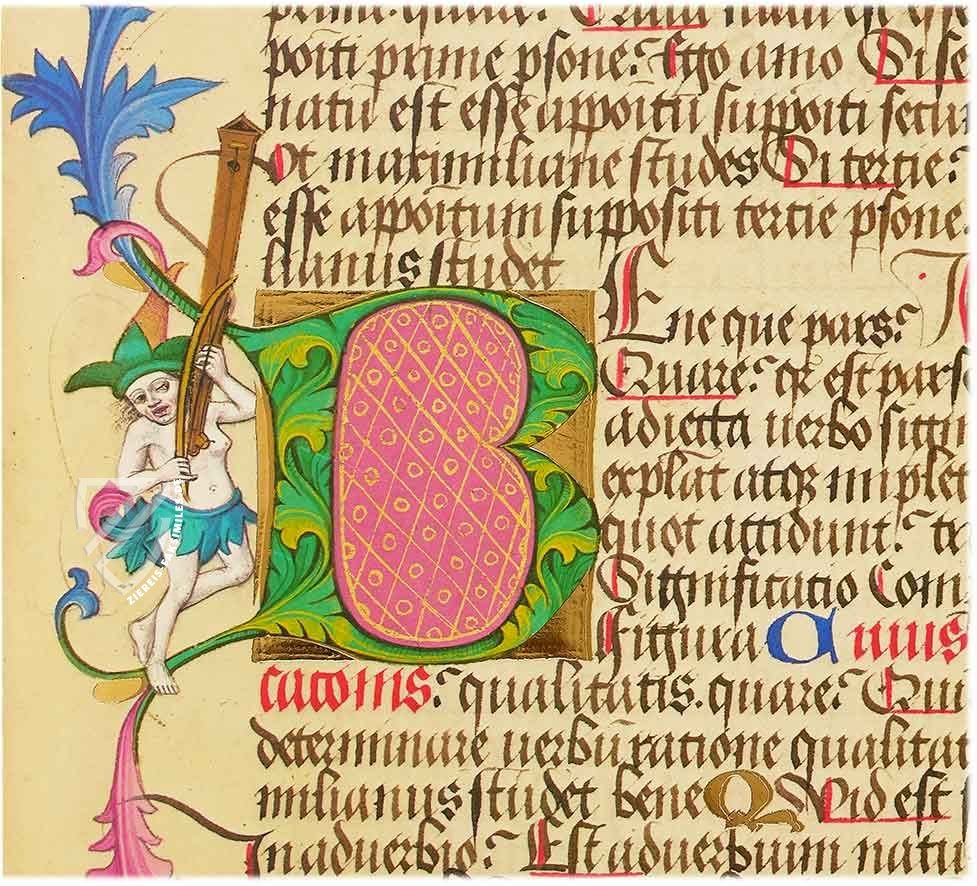 prime. quare. Quia natu est esse
poiti prime psone. Ego amo Si se
natū est esse appoitū suppoiti secū
Vt maximiliane studes Si tertie.
esse appoitum suppositi tertie psone
lianus studet
BEne que pars.
Quare. qr est pars
adiecta verbo
explat atqz implet
quot accidunt. tre
Significatio Com
figura Cuius
cacionis. qualitatis. quare. Qui
determinare verbū racione qualita
milianus studet bene Quid est
In aduerbio. Est aduerbium natu
ZIEREIS FACSIMILES